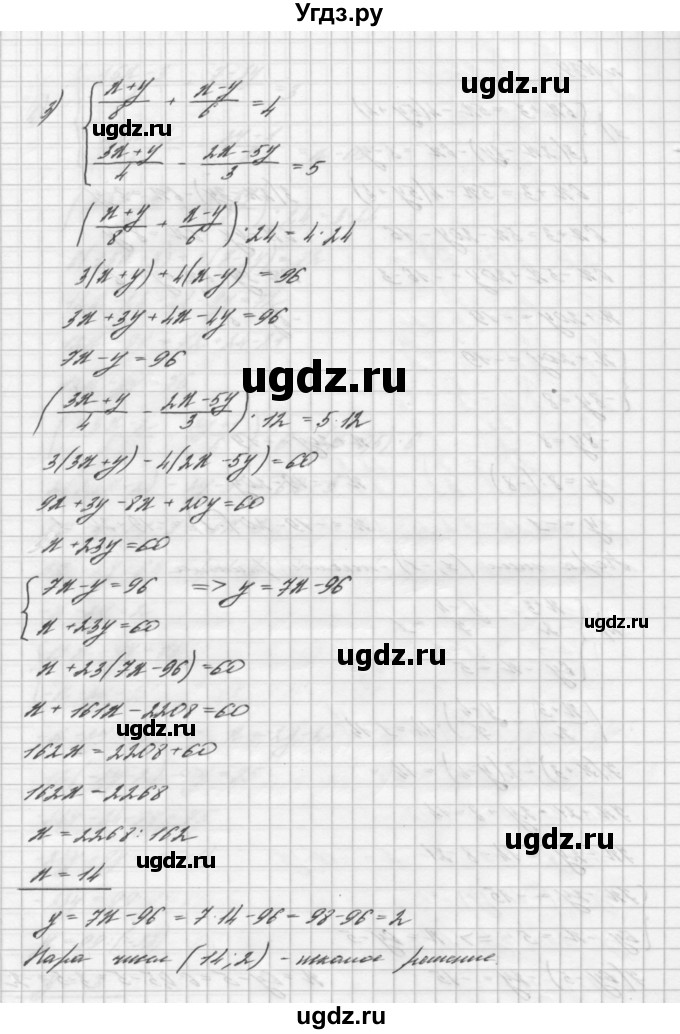 Угдз.ру
3) { (x+y)/8 + (x−y)/6 = 4
ugdz.ru
ugdz.ru
(3x+y)/4 − (2x−5y)/3 = 5
((x+y)/8 + (x−y)/6)·24 = 4·24
3(x+y)+4(x−y) = 96
3x+3y+4x−4y=96
7x−y=96
ugdz.ru
((3x+y)/4 − (2x−5y)/3)·12 = 5·12
3(3x+y)−4(2x−5y)=60
9x+3y−8x+20y=60
x+23y=60
{ 7x−y=96 => y=7x−96
x+23y=60
ugdz.ru
ugdz.ru
x+23(7x−96)=60
x+161x−2208=60
ugdz.ru
162x=2208+60
162x=2268
x=2268:162
ugdz.ru
ugdz.ru
x=14
y=7x−96=7·14−96=98−96=2
Пара чисел (14;2) - искомое решение.
ugdz.ru